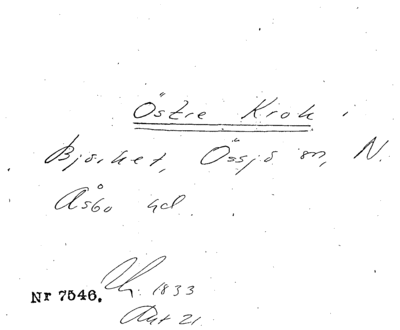 Östre Krok i
Bjärket, Össjö sn, N.
Åsbo hd.
Nr 7546. 1833
Akt 21